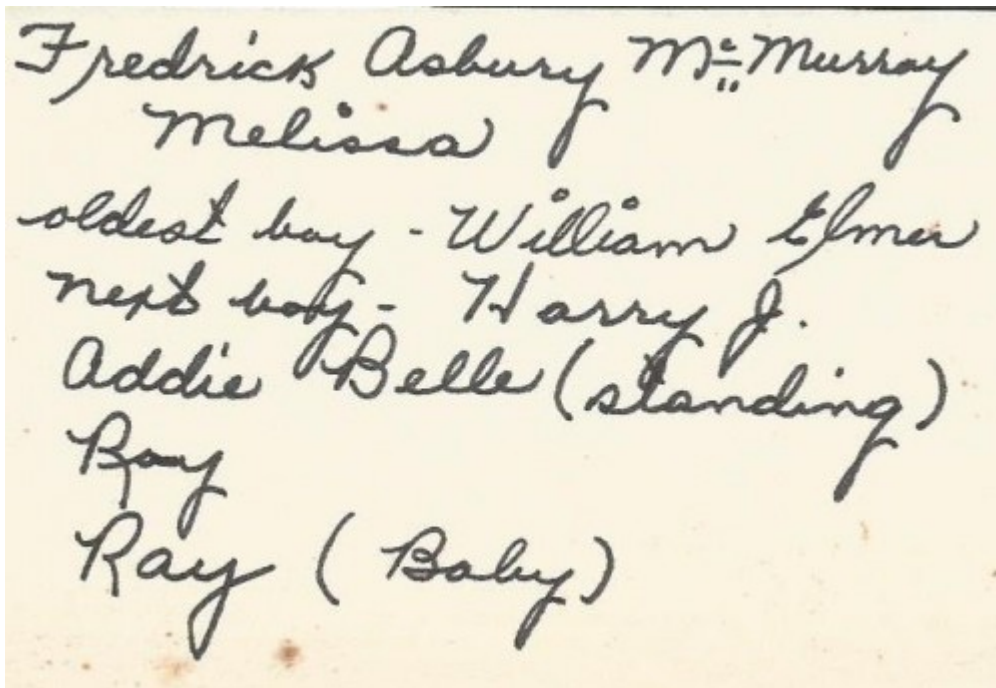 Fredrick Asbury McMurray
Melissa
oldest boy - William Elmer
next boy - Harry J.
Addie Belle (standing)
Roy
Ray (Baby)